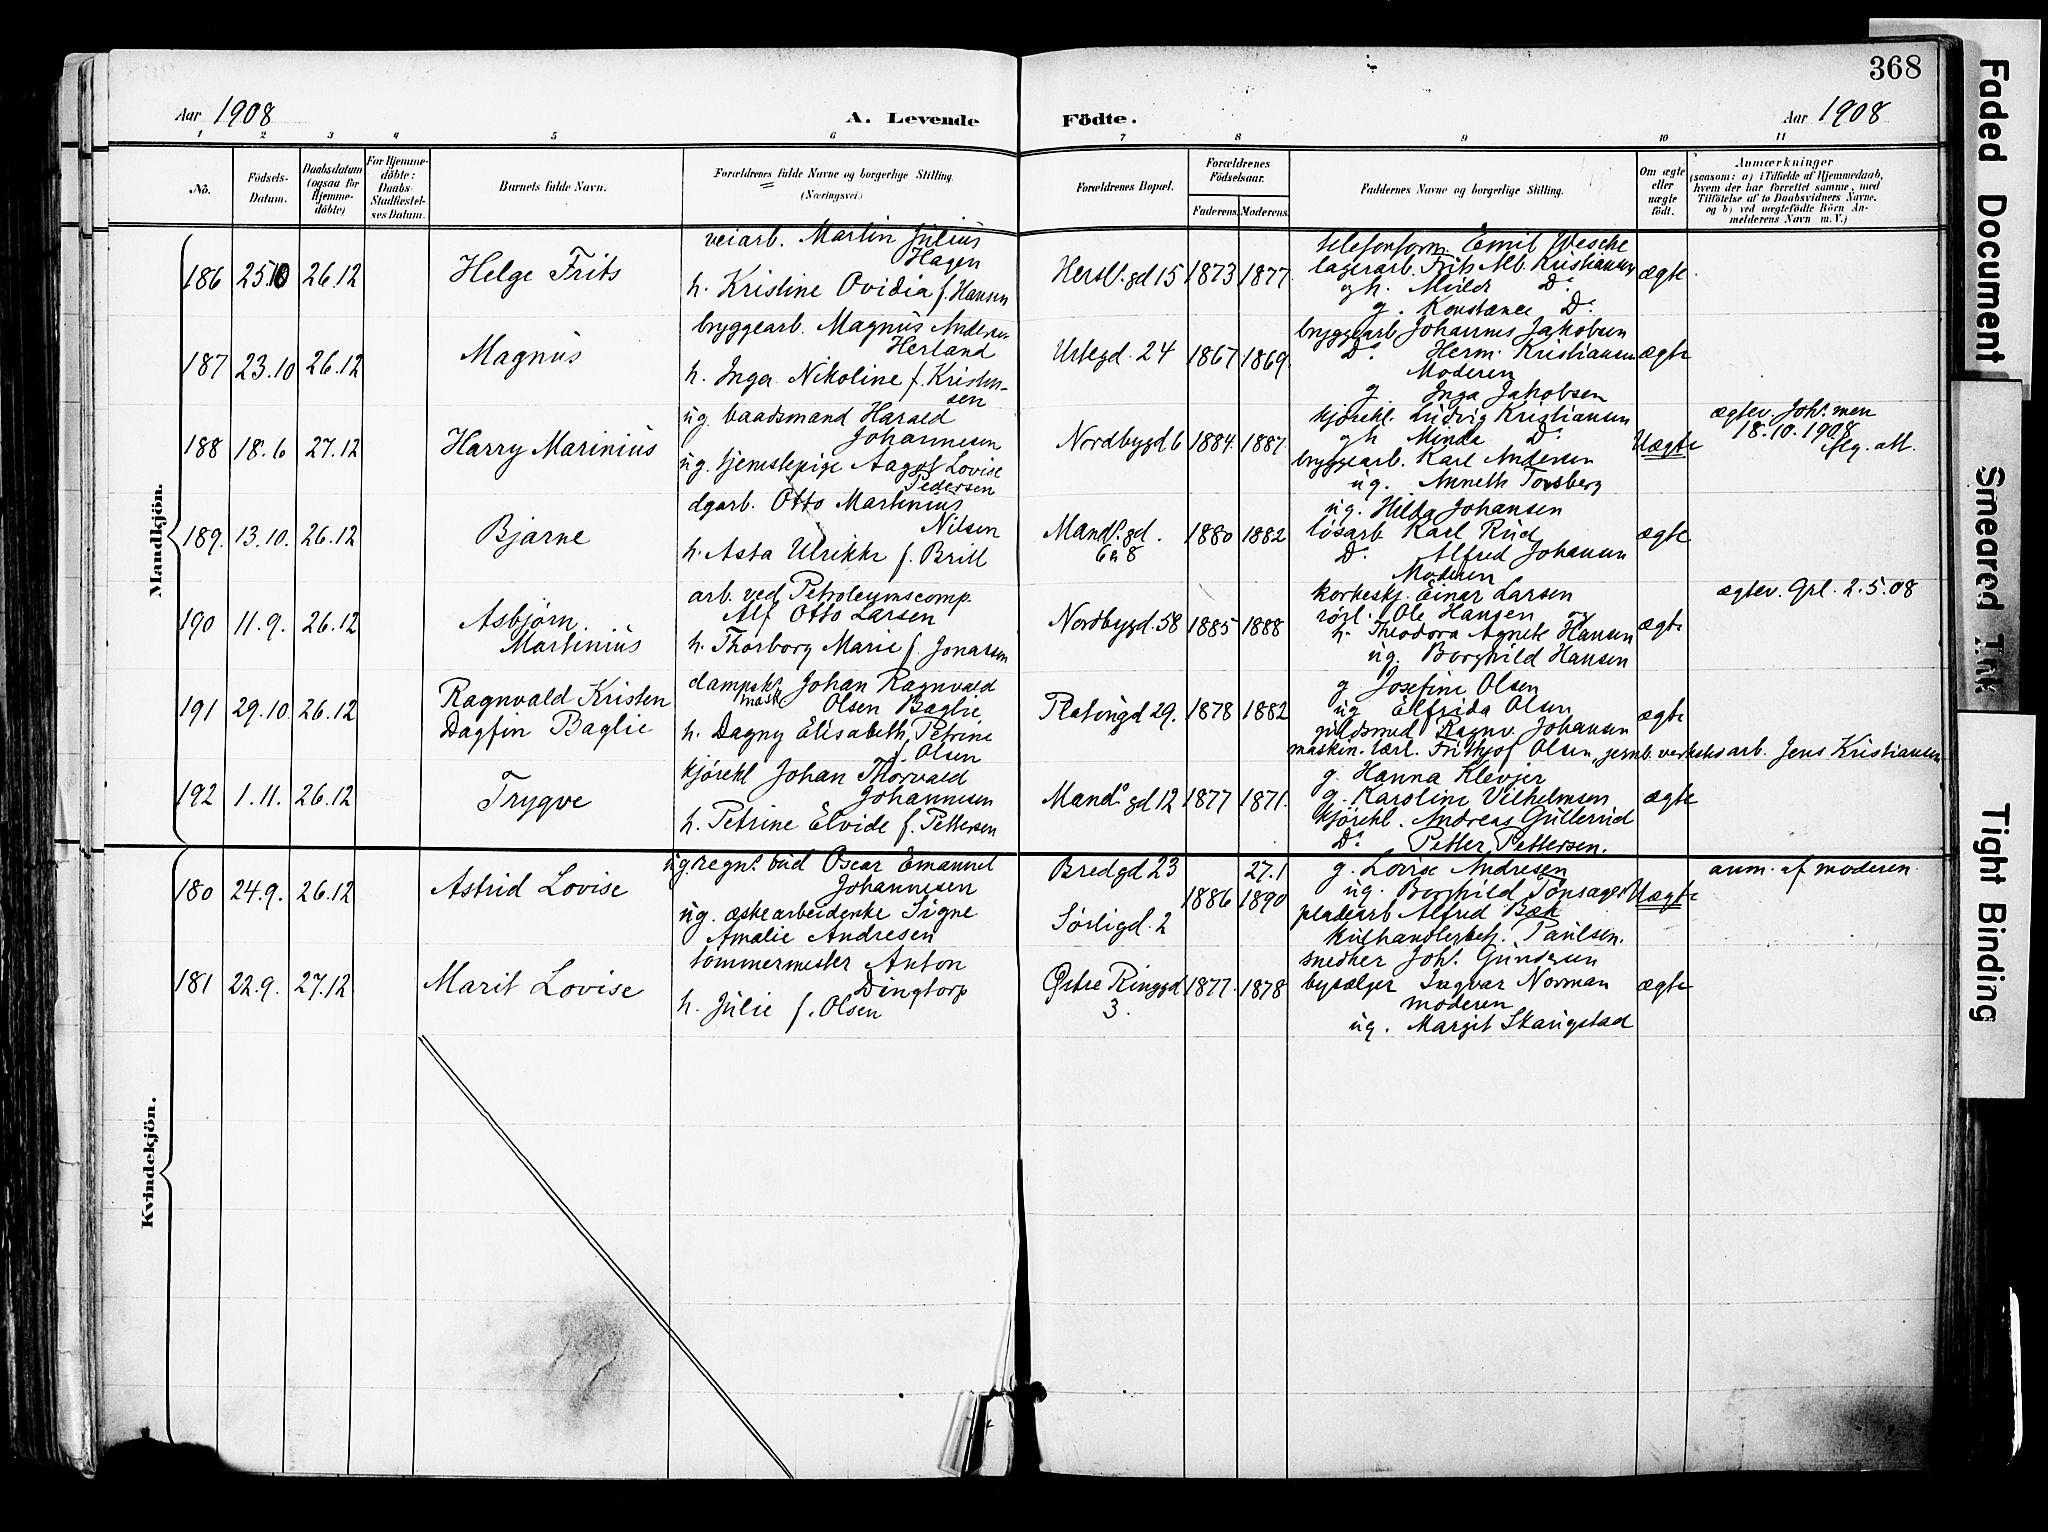 368
Aar 1908
A. Levende Födte.
Aar 1908
1 2 3 4 5 6 7 8 9 10 11
No.
Födsels-
Datum.
Daabsdatum
(ogsaa for
Hjemme-
döbte)
For Hjemme-
döbte:
Daabs-
Stadfæstel-
ses Datum.
Barnets fulde Navn.
Forældrenes fulde Navne og borgerlige Stilling.
(Næringsvei.)
Forældrenes Bopæl.
Forældrenes
Födselsaar.
Faderens. Moderens.
Faddernes Navne og borgerlige Stilling.
Om ægte
eller
uægte
født.
Anmærkninger
(saasom: a) i Tilfælde af Hjemmedaab,
hvem der har forrettet samme, med
Tilföielse af to Daabsvidners Navne.
og b) ved uægtefödte Börn An-
melderens Navn m. V.)
Mandkjön.
186 25.10 26.12 Helge Frits
veiarb. Martin Julius
Hagen
h. Kristine Ovidia f. Hansen
Hersl. gd 15 1873 1877
telefonform. Emil Wesche
lagerarb. Frits Alb. Kristiansen
og h. Milda Do
g. Konstance Do
ægte
187 23.10 26.12 Magnus
bryggearb. Magnus Andersen
Herland
h. Inga Nikoline f. Kristen-
sen
Urtegd. 24 1867 1869
bryggearb Johannes Jakobsen
Do Herm. Kristiansen
Moderen
g. Inga Jakobsen
ægte
188 18.6 27.12 Harry Marinius
ug. baadsmand Harald
Johannesen
ug. tjenestepige Aagot Lovise
Pedersen
Nordbygd 6 1884 1887
kjørekl. Ludvig Kristiansen
og h Minda Do
bryggearb. Karl Andersen
ug. Anneth Torsberg
Uægte
ægtev. Joh. men
18.10.1908
iflg. att.
189. 13.10. 26.12 Bjarne
dgarb. Otto Martinius
Nilsen
h. Asta Ulrikke f. Brill
Mandl. gd.
6 & 8
1880 1882
ug. Hilda Johansen
løsarb Karl Rud
Do Alfred Johansen
Moderen
ægte
190 11.9. 26.12 Asbjørn
Martinius
arb. ved Petroleumscomp.
Alf Otto Larsen
h. Thorborg Marie f. Jonassen
Nordbygd. 58 1885 1888
korkeskj. Einar Larsen
rørl. Ole Hansen og
h. Theodora Agnete Hansen
ug. Borghild Hansen
ægte
ægtev. Grl. 2.5.08
191 29.10 26.12 Ragnvald Kristen
Dagfin Baglie
dampsk.
mask Johan Ragnvald
Olsen Baglie
h. Dagny Elisabeth Petrine
f. Olsen
Platougd 29. 1878 1882
g Josefine Olsen
ug Elfrida Olsen
guldsmed Ragnv. Johansen
maskin. lærl. Frithjof Olsen, jernb. verksteds arb. Jens Kristiansen
ægte
192 1.11. 26.12 Trygve
kjørekl Johan Thorvald
Johannesen
h. Petrine Elvide f. Pettersen
Mandl gd 12 1877 1871.
g. Hanna Klevjer
g. Karoline Vilhelmsen
kjørekl. Andreas Gullerud
Do Petter Pettersen.
ægte
Kvindekjön.
180 24.9. 26.12 Astrid Lovise
ug. regnt. bud Oscar Emanuel
Johannesen
ug. æskearbeiderske Signe
Amalie Andresen
Bredgd 23
Sørligd. 2
27.1
1886 1890
g. Lovise Andresen
ug. Borghild Tønsager
pladearb Alfred Bæk
kulhandlerbetj. Paulsen.
Uægte
anm. af moderen.
181 22.9. 27.12 Marit Lovise
tømmermester Anton
Dingtorp
h. Julie f. Olsen
Østre Ringgd
3.
1877. 1878
snedker Joh. Gundersen
bysælger Ingvar Norman
moderen
ug. Margit Skaugstad
ægte
Faded Document
Smeared Ink
Tight Binding